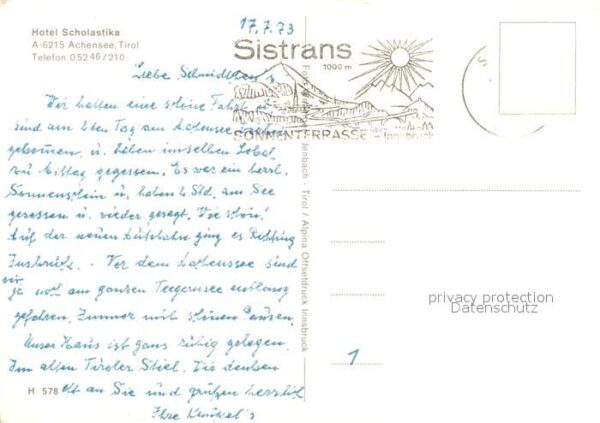 Hotel Scholastika
A-6215 Achensee, Tirol
Telefon 05246/210
17.7.73
Sistrans
1000 m
SONNENTERRASSE über Innsbruck
Liebe
Wir hatten eine schöne Fahrt u.
sind am Tag am Achensee
gekommen, u. haben im selben Lokal
zu Mittag gegessen. Es war ein herrl.
Sonnenschein u. haben Std. am See
gesessen u. wieder gesagt. Wie schön!
Auf der neuen Autobahn ging es Richtung
Innsbruck. Vor dem Achensee sind
wir
ja noch am ganzen Tegernsee entlang
gefahren. Immer mit schönen Pausen.
Unser Haus ist ganz ruhig gelegen.
Im alten Tiroler Stiel. Wir denken
H 578 oft an Sie und grüßen herzlich
Ihre
Jenbach - Tirol / Alpina Offsetdruck Innsbruck
privacy protection
Datenschutz
1